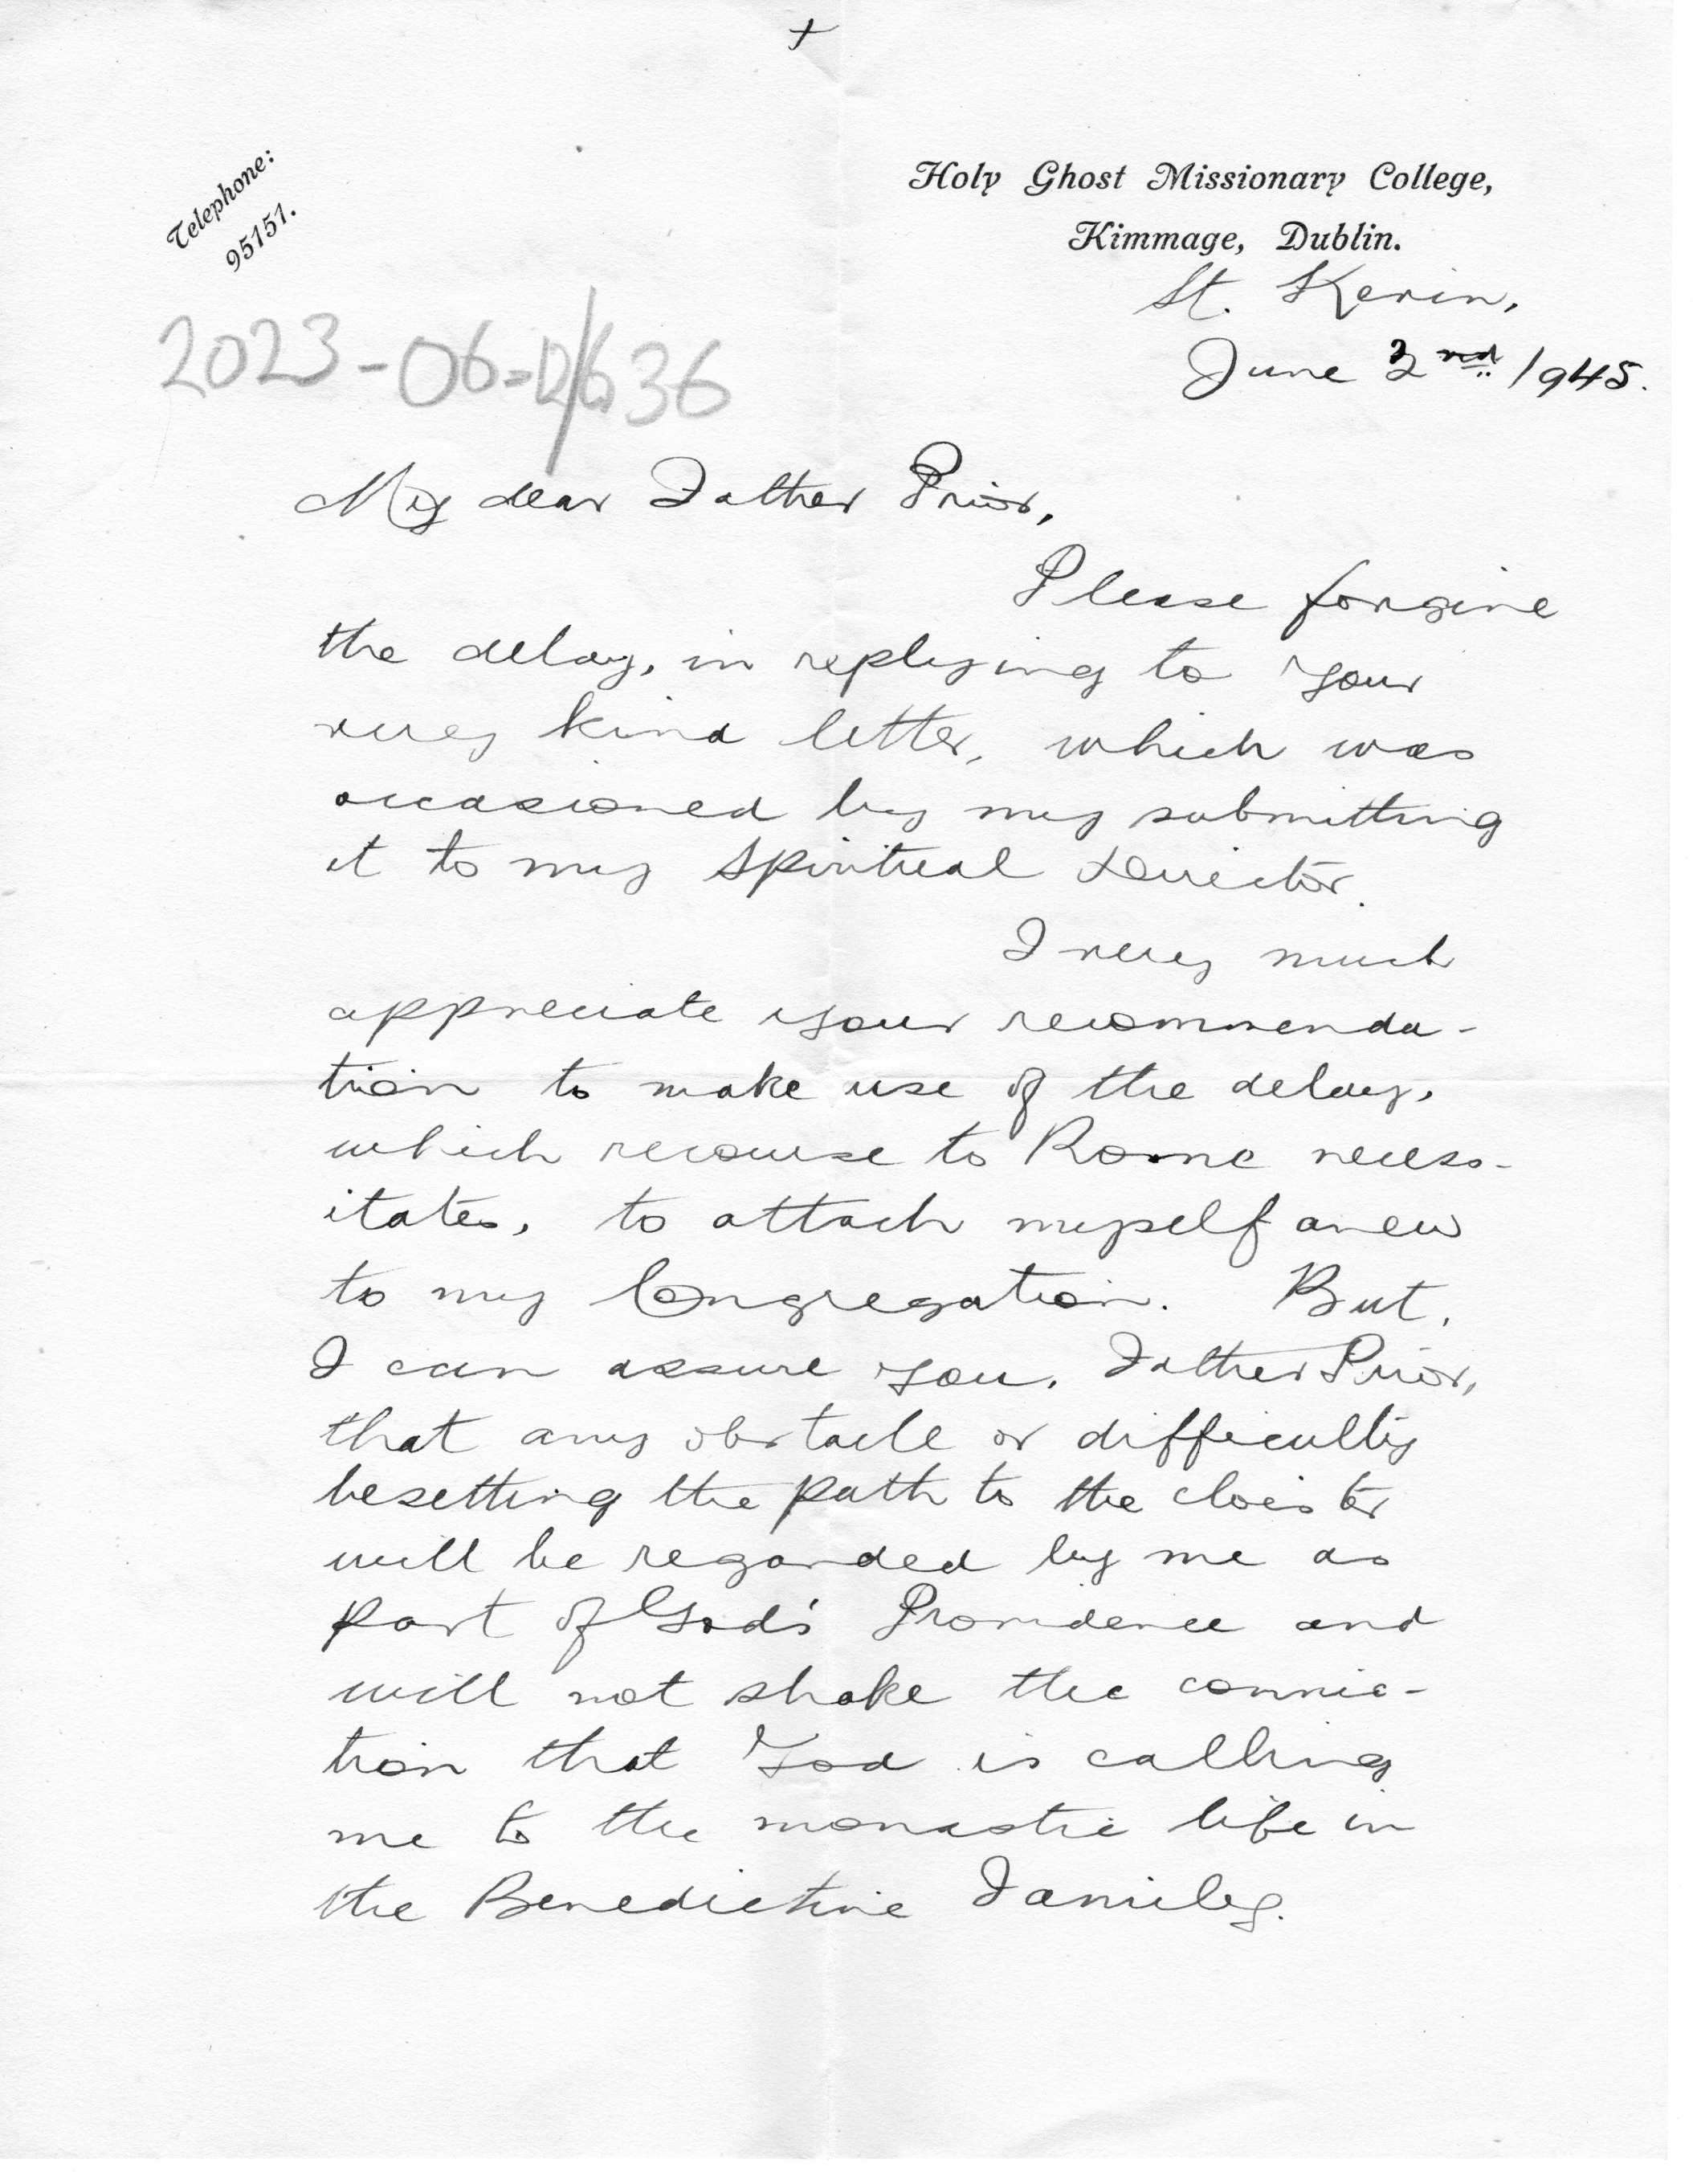 +
Telephone:
95151.
Holy Ghost Missionary College,
Kimmage, Dublin.
St. Kevin,
June 2nd 1945.
2023-06- 636
My dear Father Prior,
Please forgive
the delay, in replying to your
very kind letter, which was
occasioned by my submitting
it to my Spiritual Director.
I very much
appreciate your recommenda-
tion to make use of the delay,
which recourse to Rome necess-
itates, to attach myself anew
to my Congregation. But,
I can assure you, Father Prior,
that any obstacle or difficulty
besetting the path to the cloister
will be regarded by me as
part of God's Providence and
will not shake the convic-
tion that God is calling
me to the monastic life in
the Benedictine Family.